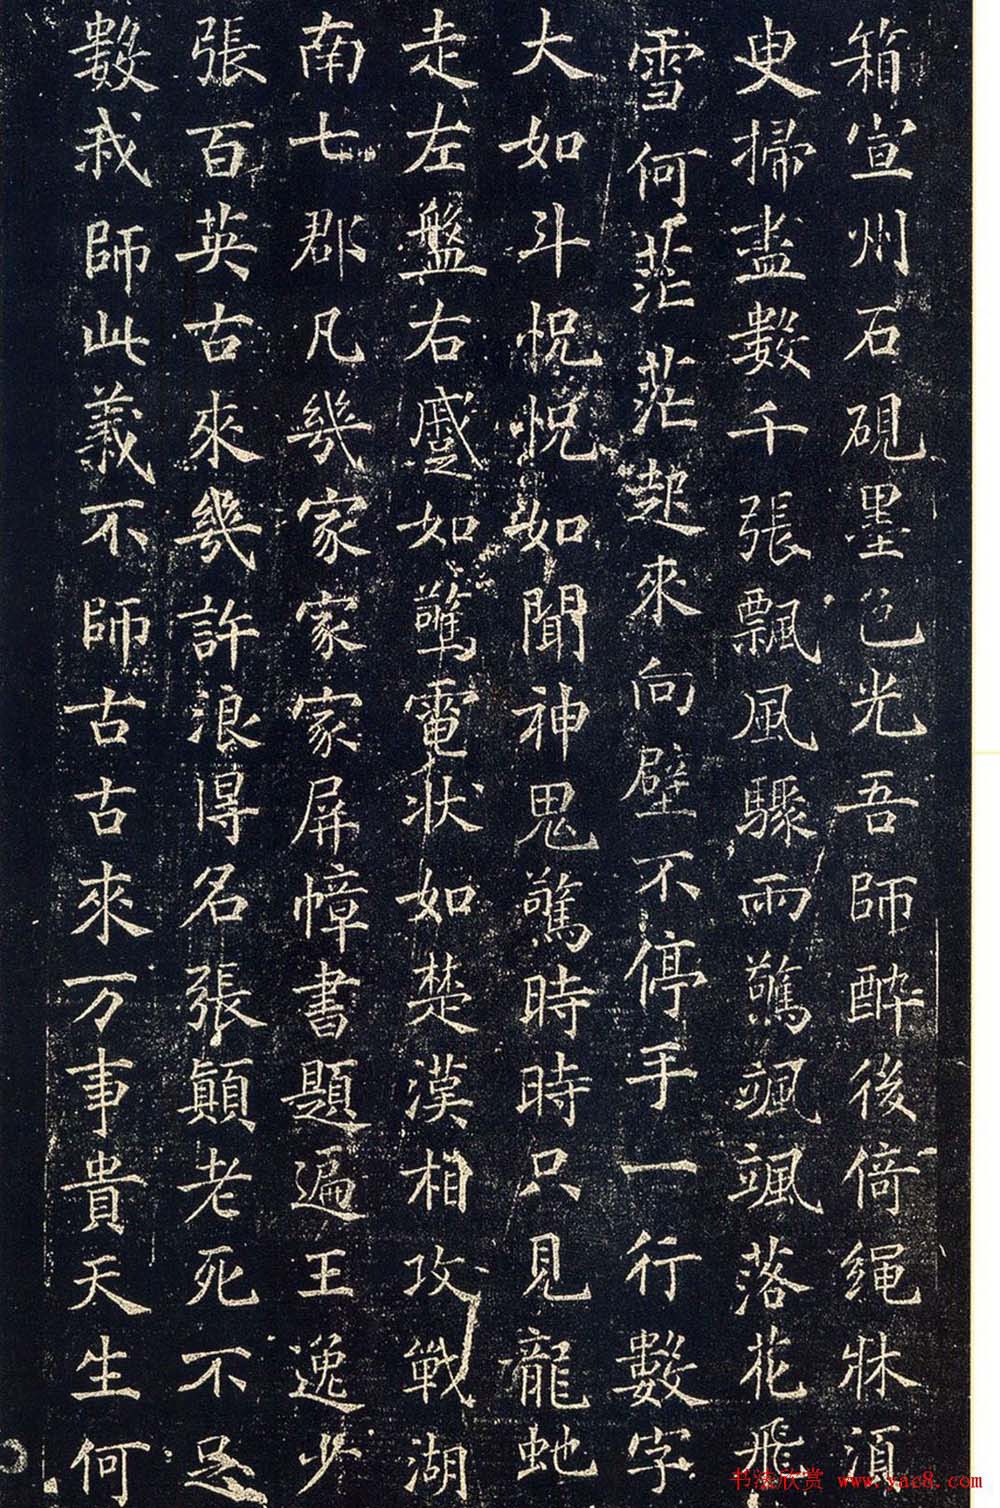 箱宣州石硯墨色光吾師醉後倚繩牀湏
臾掃盡數千張飄風驟雨驚颯颯落花飛
雪何茫茫起來向壁不停手一行數字
大如斗怳怳如聞神鬼驚時時只見龍虵
走左盤右蹙如驚電狀如楚漢相攻戰湖
南七郡凡幾家家家屏幛書題遍王逸少
張百英古來幾許浪得名張顛老死不足
數我師此義不師古古來万事貴天生何
书法欣赏 www.yac8.com